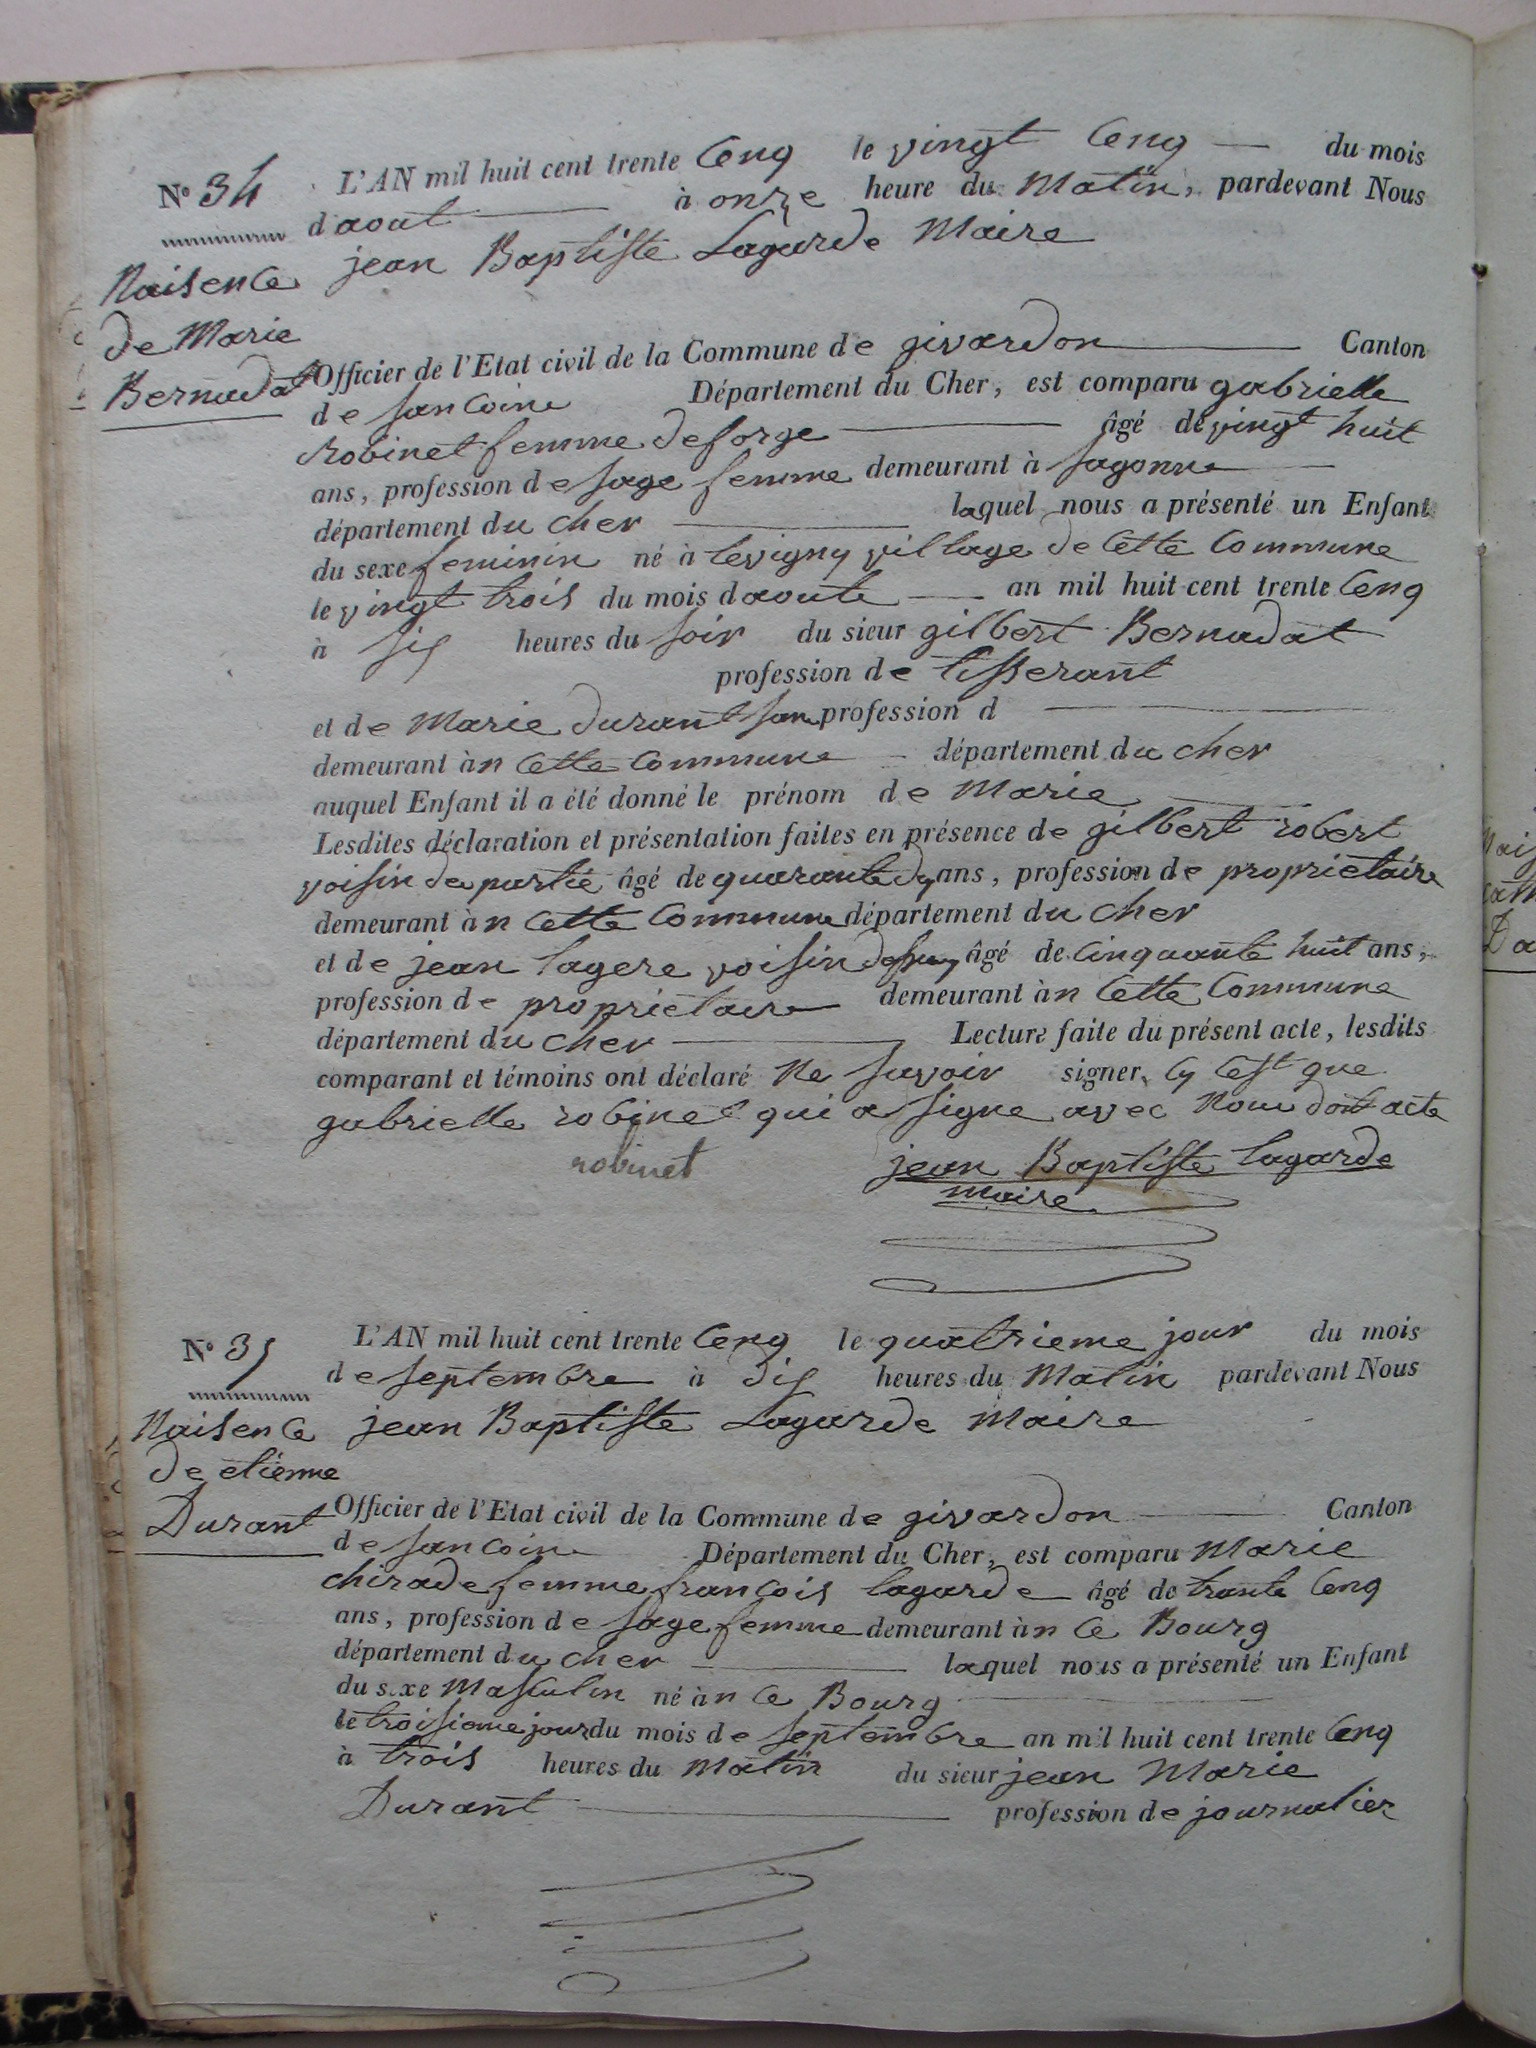 N° 34
Naisence
de Marie
Bernadat
L'AN mil huit cent trente Cenq le vingt Cenq du mois
d'aout à onze heure du Matin, pardevant Nous
jean Baptiste Lagarde Maire
Officier de l'Etat civil de la Commune de givardon Canton
de sancoine Département du Cher, est comparu gabrielle
robinet femme deforge âgé de vingt huit
ans, profession de sage femme demeurant à sagonne
département du cher laquel nous a présenté un Enfant
du sexe feminin né à levigny village de Cette Commune
le vingt trois du mois daoute an mil huit cent trente Cenq
à sis heures du soir du sieur gilbert Bernadat
profession de tisserant
et de Marie durant profession d
demeurant àn Cette Commune département du cher
auquel Enfant il a été donné le prénom de Marie
Lesdites déclaration et présentation faites en présence de gilbert robert
voisin de partie âgé de quarante ans, profession de proprietaire
demeurant àn Cette Commune département du cher
et de jean lagere voisin âgé de Cinquante huit ans,
profession de proprietaire demeurant àn Cette Commune
département du cher Lecture faite du présent acte, lesdits
comparant et témoins ont déclaré Ne savoir signer, Cest que
gabrielle robinet qui a signe avec Nous dont acte
robinet jean Baptiste lagarde
maire
N° 35
Naisence
de etienne
Durant
L'AN mil huit cent trente Cenq le quatrieme jour du mois
de septembre à dis heures du Matin pardevant Nous
jean Baptiste Lagarde Maire
Officier de l'Etat civil de la Commune de givardon Canton
de sancoine Département du Cher, est comparu Marie
chirade femme francois lagarde âgé de trante Cenq
ans, profession de sage femme demeurant àn Ce Bourg
département du cher laquel nous a présenté un Enfant
du sexe Masculin né àn Ce Bourg
le troisieme jour du mois de septembre an mil huit cent trente Cenq
à trois heures du Matin du sieur jean Marie
Durant profession de journalier